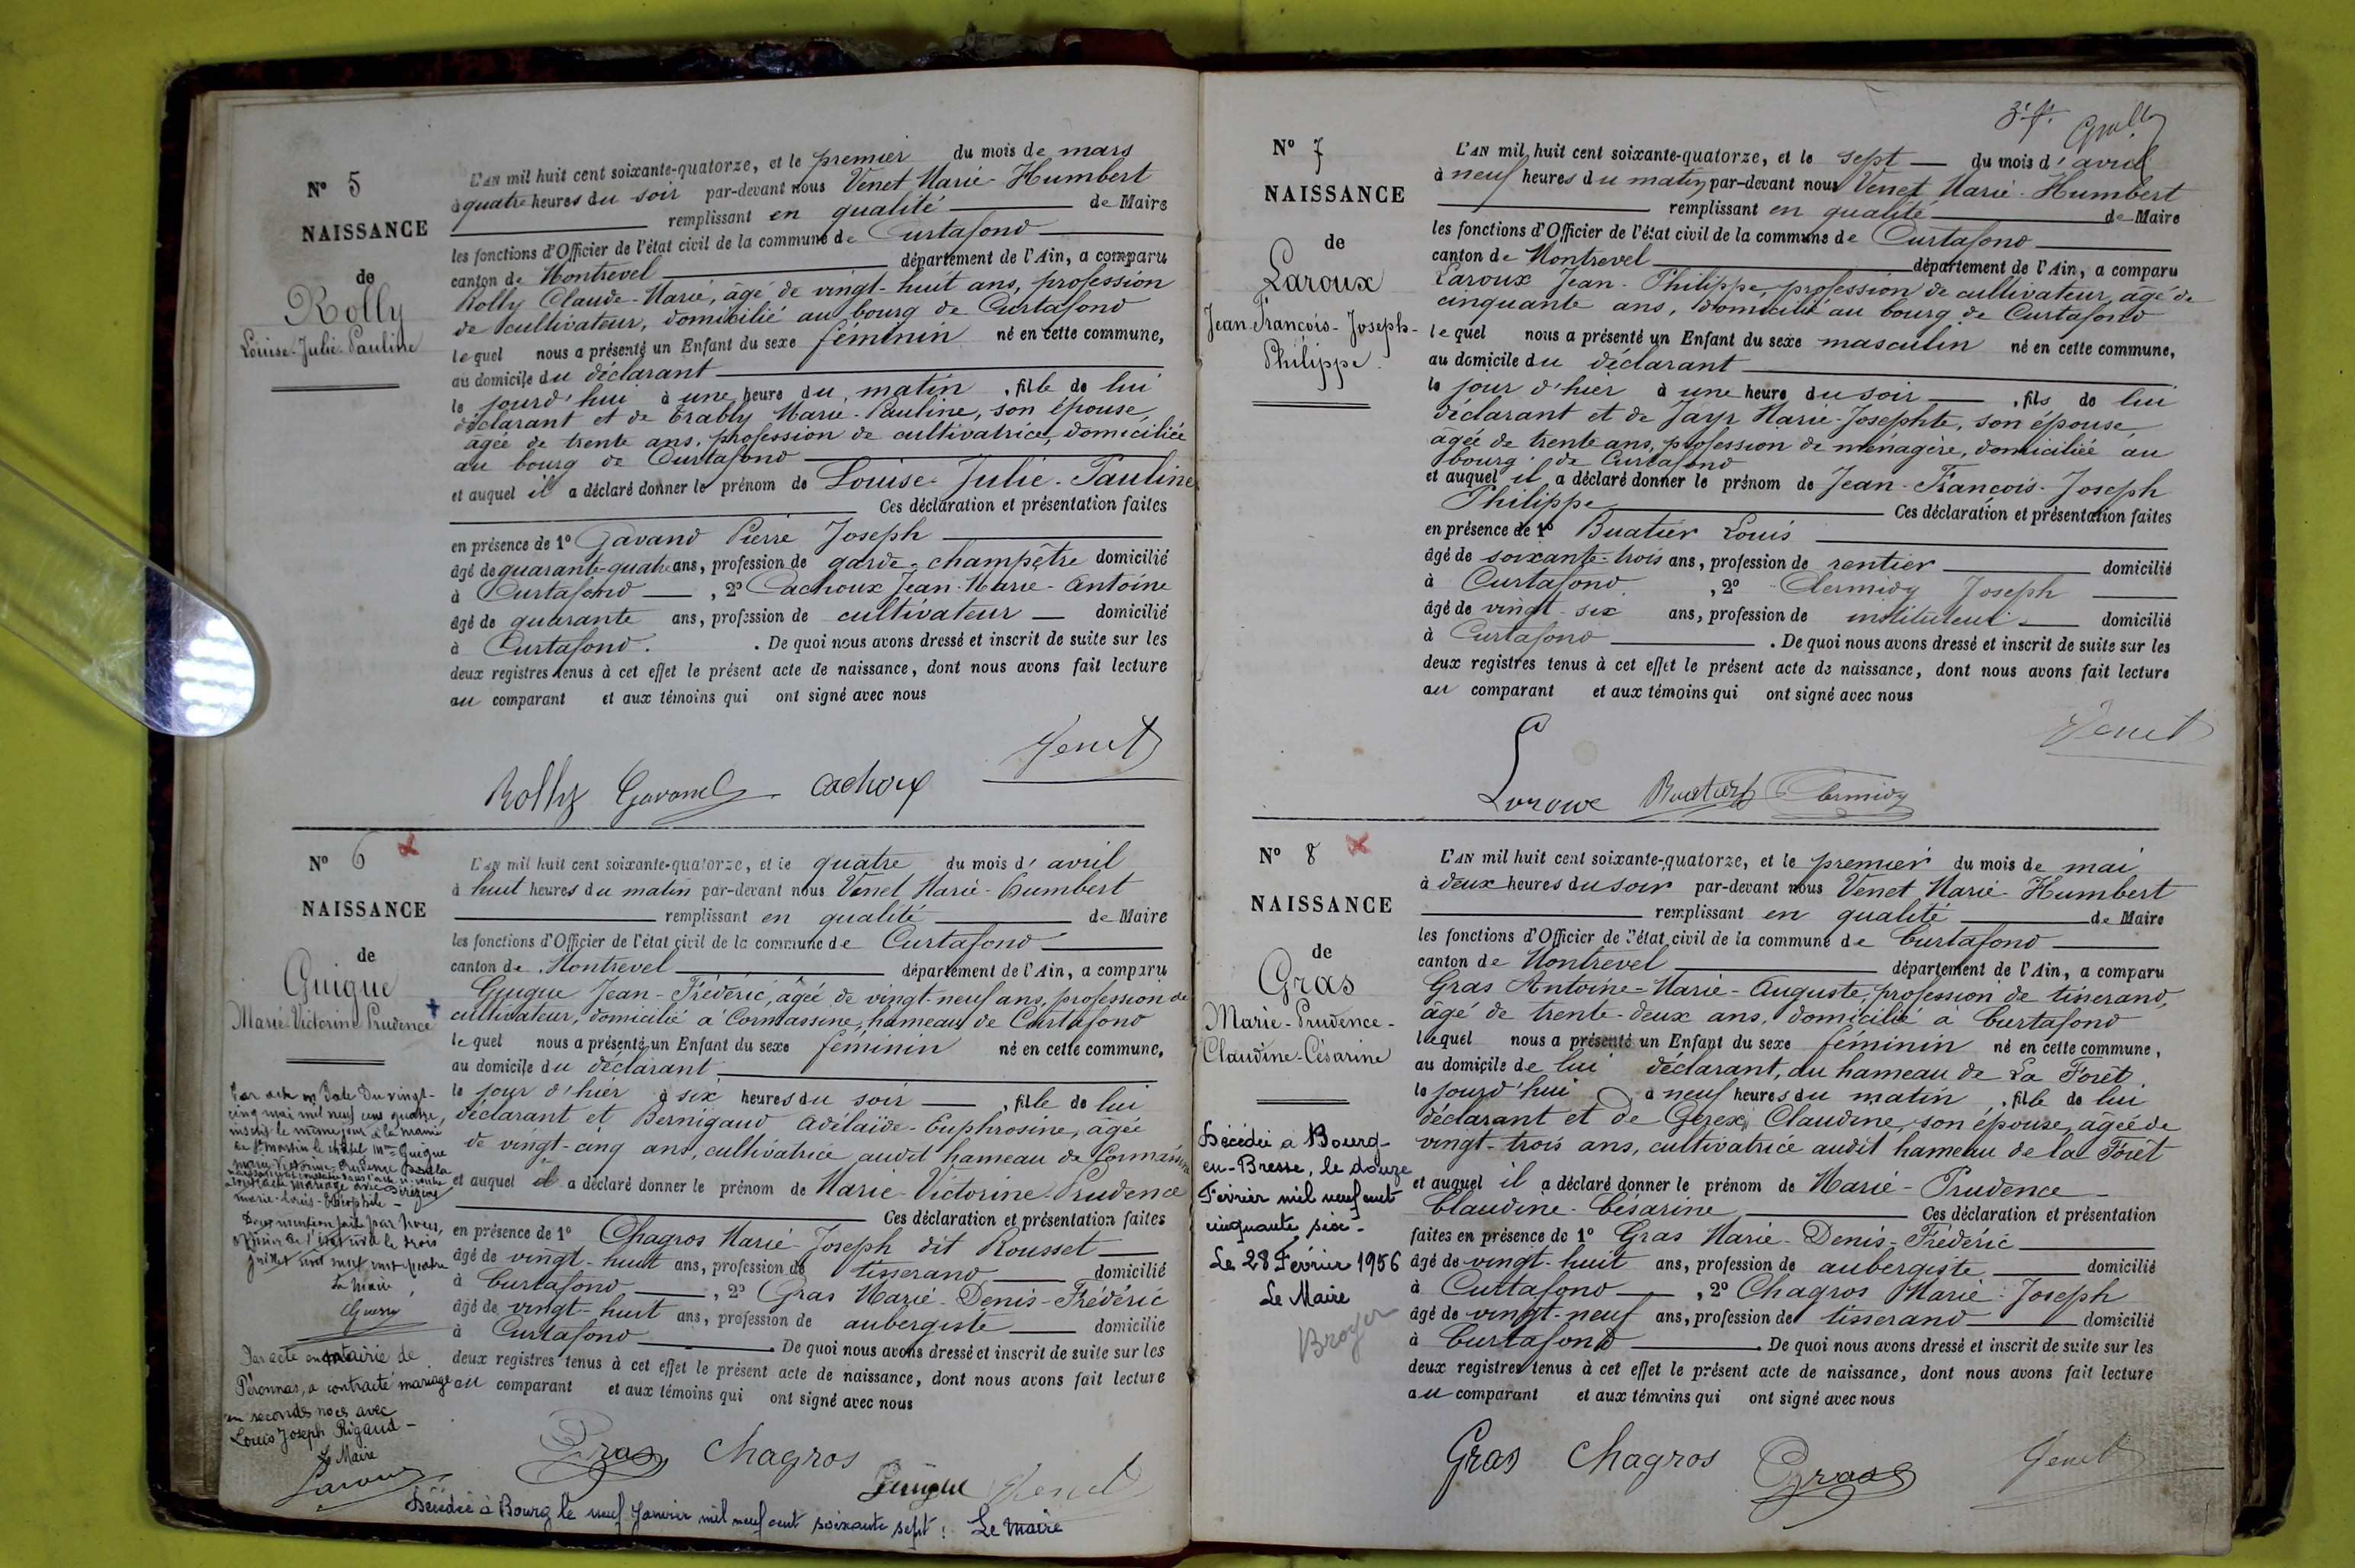 N° 5
NAISSANCE
de
Rolly
Louise-Julie-Pauline
L'AN mil huit cent soixante-quatorze, et le premier du mois de mars
à quatre heures du soir par-devant nous Venet Marie-Humbert
remplissant en qualité de Maire
les fonctions d'Officier de l'état civil de la commune de Curtafond
canton de Montrevel département de l'Ain, a comparu
Rolly Claude-Marie, âgé de vingt-huit ans, profession
de cultivateur, domicilié au bourg de Curtafond
lequel nous a présenté un Enfant du sexe féminin né en cette commune,
au domicile du déclarant
le jourd'hui à une heure du matin, fille de lui
déclarant et de Trably Marie-Pauline, son épouse,
âgée de trente ans, profession de cultivatrice, domiciliée
au bourg de Curtafond
et auquel il a déclaré donner le prénom de Louise-Julie-Pauline
Ces déclaration et présentation faites
en présence de 1° Gavand Pierre Joseph
âgé de quarante-quatre ans, profession de garde-champêtre domicilié
à Curtafond, 2° Cachoux Jean-Marie-Antoine
âgé de quarante ans, profession de cultivateur domicilié
à Curtafond. De quoi nous avons dressé et inscrit de suite sur les
deux registres tenus à cet effet le présent acte de naissance, dont nous avons fait lecture
au comparant et aux témoins qui ont signé avec nous
Venet
Rolly Gavand Cachoux
N° 6
NAISSANCE
de
Guigue
Marie-Victorine Prudence
L'AN mil huit cent soixante-quatorze, et le quatre du mois d'avril
à huit heures du matin par-devant nous Venet Marie-Humbert
remplissant en qualité de Maire
les fonctions d'Officier de l'état civil de la commune de Curtafond
canton de Montrevel département de l'Ain, a comparu
Guigue Jean-Frédéric, âgée de vingt-neuf ans, profession de
cultivateur, domicilié à Cormassine, hameau de Curtafond
lequel nous a présenté un Enfant du sexe féminin né en cette commune,
au domicile du déclarant
le jour d'hier à six heures du soir, fille de lui
déclarant et Bernigaud Adélaïde-Euphrosine, agée
de vingt-cinq ans, cultivatrice audit hameau de Cormassine
et auquel il a déclaré donner le prénom de Marie-Victorine-Prudence
Ces déclaration et présentation faites
en présence de 1° Chagros Marie-Joseph dit Rousset
âgé de vingt-huit ans, profession de tisserand domicilié
à Curtafond, 2° Gras Marie-Denis-Frédéric
âgé de vingt-huit ans, profession de aubergiste domicilié
à Curtafond De quoi nous avons dressé et inscrit de suite sur les
deux registres tenus à cet effet le présent acte de naissance, dont nous avons fait lecture
au comparant et aux témoins qui ont signé avec nous
Gras Chagros
Guigue Venet
Par acte en Date Du vingt-
cinq mai mil neuf cent quatre,
inscrit le même jour à la mairie
de St martin le chatel Mme Guigue
marie Victorine-Prudence
mariage avec
marie-Louis-Théophile
Dont mention faite par Nous,
officier de l'état civil le trois
juillet mil neuf cent quatre
Le Maire,
Par acte en mairie de
Péronnas, a contracté mariage
en secondes noces avec
Louis Joseph Rigaud
Le Maire
Décédée à Bourg le neuf Janvier mil neuf cent soixante sept : Le Maire
N° 7
NAISSANCE
de
Laroux
Jean-François-Joseph-
Philippe
L'AN mil huit cent soixante-quatorze, et le sept du mois d'avril
à neuf heures du matin par-devant nous Venet Marie-Humbert
remplissant en qualité de Maire
les fonctions d'Officier de l'état civil de la commune de Curtafond
canton de Montrevel département de l'Ain, a comparu
Laroux Jean-Philippe, profession de cultivateur, âgé de
cinquante ans, domicilié au bourg de Curtafond
lequel nous a présenté un Enfant du sexe masculin né en cette commune,
au domicile du déclarant
le jour d'hier à une heure du soir, fils de lui
déclarant et de Jayr Marie-Josephte, son épouse,
âgée de trente ans, profession de ménagère, domiciliée au
bourg de Curtafond
et auquel il a déclaré donner le prénom de Jean-François-Joseph
Philippe Ces déclaration et présentation faites
en présence de 1° Buatier Louis
âgé de soixante-trois ans, profession de rentier domicilié
à Curtafond, 2° Clermidy Joseph
âgé de vingt-six ans, profession de instituteur domicilié
à Curtafond. De quoi nous avons dressé et inscrit de suite sur les
deux registres tenus à cet effet le présent acte de naissance, dont nous avons fait lecture
au comparant et aux témoins qui ont signé avec nous
Venet
Laroux Buatier Clermidy
N° 8
NAISSANCE
de
Gras
Marie-Prudence-
Claudine-Césarine
L'AN mil huit cent soixante-quatorze, et le premier du mois de mai
à deux heures du soir par-devant nous Venet Marie-Humbert
remplissant en qualité de Maire
les fonctions d'Officier de l'état civil de la commune de Curtafond
canton de Montrevel département de l'Ain, a comparu
Gras Antoine-Marie-Auguste, profession de tisserand,
âgé de trente-deux ans, domicilié à Curtafond
lequel nous a présenté un Enfant du sexe féminin né en cette commune,
au domicile de lui déclarant, au hameau de La Forêt
le jourd'hui à neuf heures du matin, fille de lui
déclarant et de Gerex Claudine, son épouse, âgée de
vingt-trois ans, cultivatrice audit hameau de la Forêt
et auquel il a déclaré donner le prénom de Marie-Prudence-
Claudine-Césarine Ces déclaration et présentation
faites en présence de 1° Gras Marie-Denis-Frédéric
âgé de vingt-huit ans, profession de aubergiste domicilié
à Curtafond, 2° Chagros Marie-Joseph
âgé de vingt-neuf ans, profession de tisserand domicilié
à Curtafond. De quoi nous avons dressé et inscrit de suite sur les
deux registres tenus à cet effet le présent acte de naissance, dont nous avons fait lecture
au comparant et aux témoins qui ont signé avec nous
Gras Chagros Gras Venet
Décédée à Bourg-
en-Bresse, le douze
Février mil neuf cent
cinquante six-
Le 28 Février 1956
Le Maire
Broyer